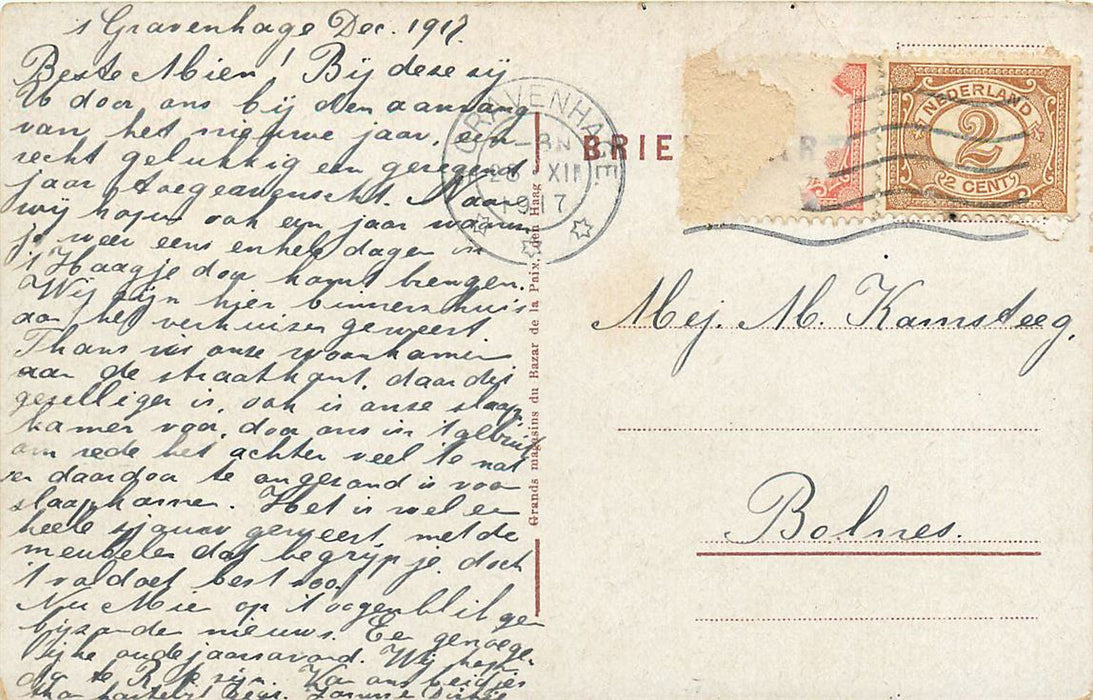 's Gravenhage Dec. 1917.
Beste Mien! Bij deze zij
U door ons bij den aanvang
van het nieuwe jaar, een
recht gelukkig en gezegend
jaar toegewenscht. Maar
wij hopen ook een jaar waarin
je weer eens enkele dagen in
't Haagje door komt brengen.
Wij zijn hier binnenshuis
aan het verhuizen geweest
Thans is onze woonkamer
aan de straatkant, daar dit
gezelliger is, ook is onze slaap
kamer voor, door ons in 't gebruik
om rede het achter veel te nat
en daardoor te ongezond is voor
slaapkamer. Het is wel een
heele sjouw geweest met de
meubelen dat begrijp je doch
't voldoet best zoo.
Nu Mien op 't oogenblik geen
bijzonder nieuws. Een genoege-
lijke oudejaarsavond. Wij
te R. te zijn. Van ons beidjes
hartelijk
GRAVENHAGE
-8N
28 XII
1917
BRIEFKAART
NEDERLAND
2
2 CENT
Mej. M. Kamsteeg.
Bolnes.
Grands magasins du Bazar de la Paix, den Haag